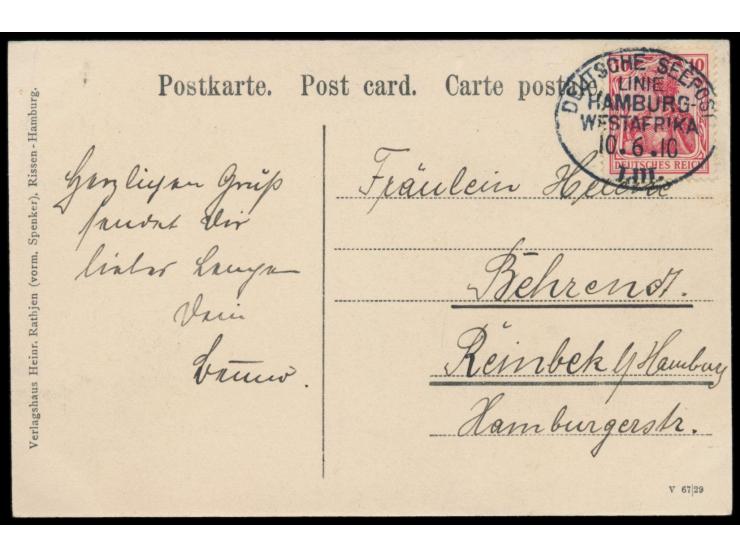 Postkarte. Post card. Carte postale.
10
DEUTSCHE SEEPOST
LINIE
HAMBURG-
WESTAFRIKA
10.6.10
DEUTSCHES REICH
Herzlichen Gruß
sendet Dir
lieber
Dein
Benno.
Fräulein Helene
Behrend.
Reinbek b/Hamburg
Hamburgerstr.
Verlagshaus Heinr. Rathjen (vorm. Spenker), Rissen-Hamburg.
V 67|29